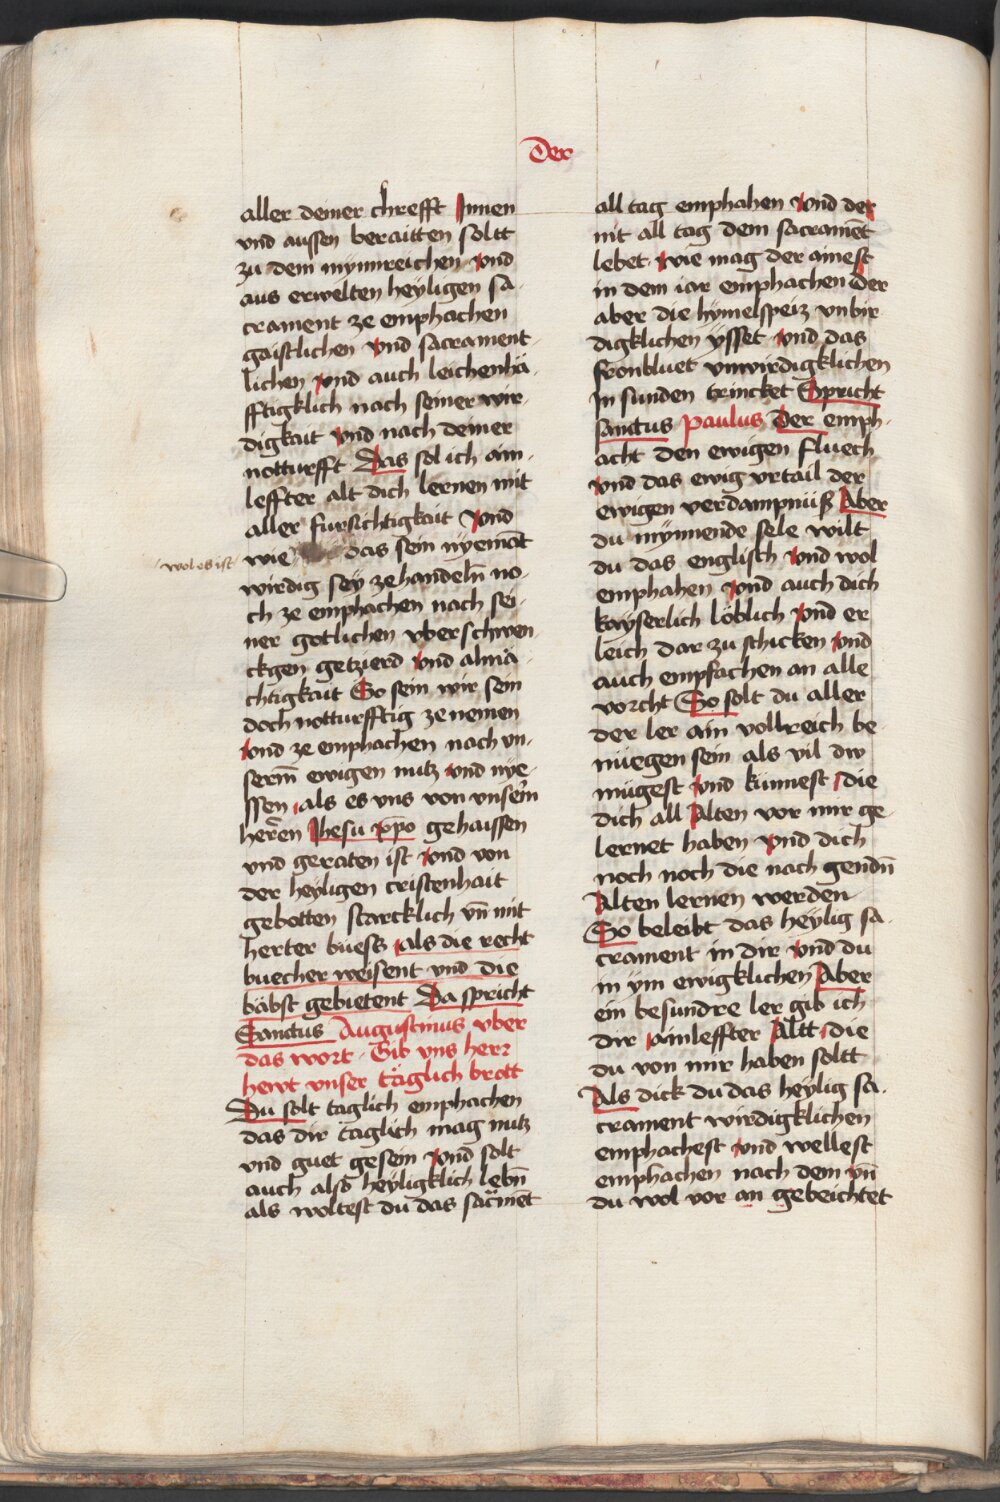 Der
aller deiner chrefft Innen
vnd aussen beraitten soltt
zu dem mynnreichen vnd
aus erwelten heyligen sa-
crament ze emphachen
gaistlichen vnd sacrament-
lichen vnd auch leichenhä-
fftigklich nach seiner wir-
digkait vnd nach deiner
notturfft Das sol ich ain-
leffter alt dich lernen mit
aller fursichtigkait vnd
wol es ist
wie das sein nyemāt
wirdig sey ze handelñ no-
ch ze emphachen nach sei-
ner gotlichen vberschwen
ckgen getzierd vnd almä-
chtigkait So sein wir sein
doch notturfftig ze nemen
vnd ze emphachen nach vn-
serm̄ ewigen nutz vnd nye-
ssen als es vns von vnserm
herren Jhesu xp̄o gehaissen
vnd geraten ist vnd von
der heyligen cristenhait
gebotten starcklich vn̄ mit
herter buess als die recht
buecher weisent vnd die
bäbst gebietent Da spricht
Sanctus Augustinus vber
das wort Gib vns herr
hewt vnser täglich brott
Du solt taglich emphachen
das dir täglich mag nutz
vnd guet gesein vnd solt
auch also heyligklich lebn̄
als woltest du das sacmēt
all tag emphahen vnd der
nit all tag dem sacramēt
lebet wie mag der ainest
in dem iar emphachen Der
aber die hymelspeiz vnbir
digklichen ysset vnd das
fronbluet vnwirdigklichen
In sunden trincket Spricht
sanctus paulus Der emph-
acht den ewigen fluech
vnd das ewig vrtail der
ewigen verdampnüß Aber
du mynnende sele wilt
du das englisch vnd wol
emphahen vnd auch dich
kayserlich löblich vnd er
leich dar zu schicken vnd
auch empfachen an alle
vorcht So solt du aller
der ler ain vollreich be-
nüegen sein als vil dw
mügest vnd künnest die
dich all Alten vor mir ge-
lernet haben vnd dich
noch noch die nach gendn̄
Alten lernen werden
So beleibt das heylig sa-
crament in dir vnd du
in ym ewigklichen Aber
ein besundre ler gib ich
dir ainleffter Altt die
du von mir haben soltt
Als dick du das heylig sa-
crament wirdigklichen
emphachest vnd wellest
emphachen nach dem vn̄
du wol vor an gebeichtet